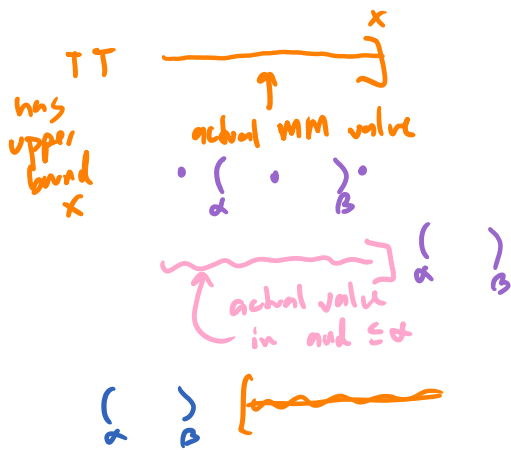 x
TT
has
upper
bound
x
actual MM value
( )
α β
( )
α β
actual value
in and ≤ α
( )
α β